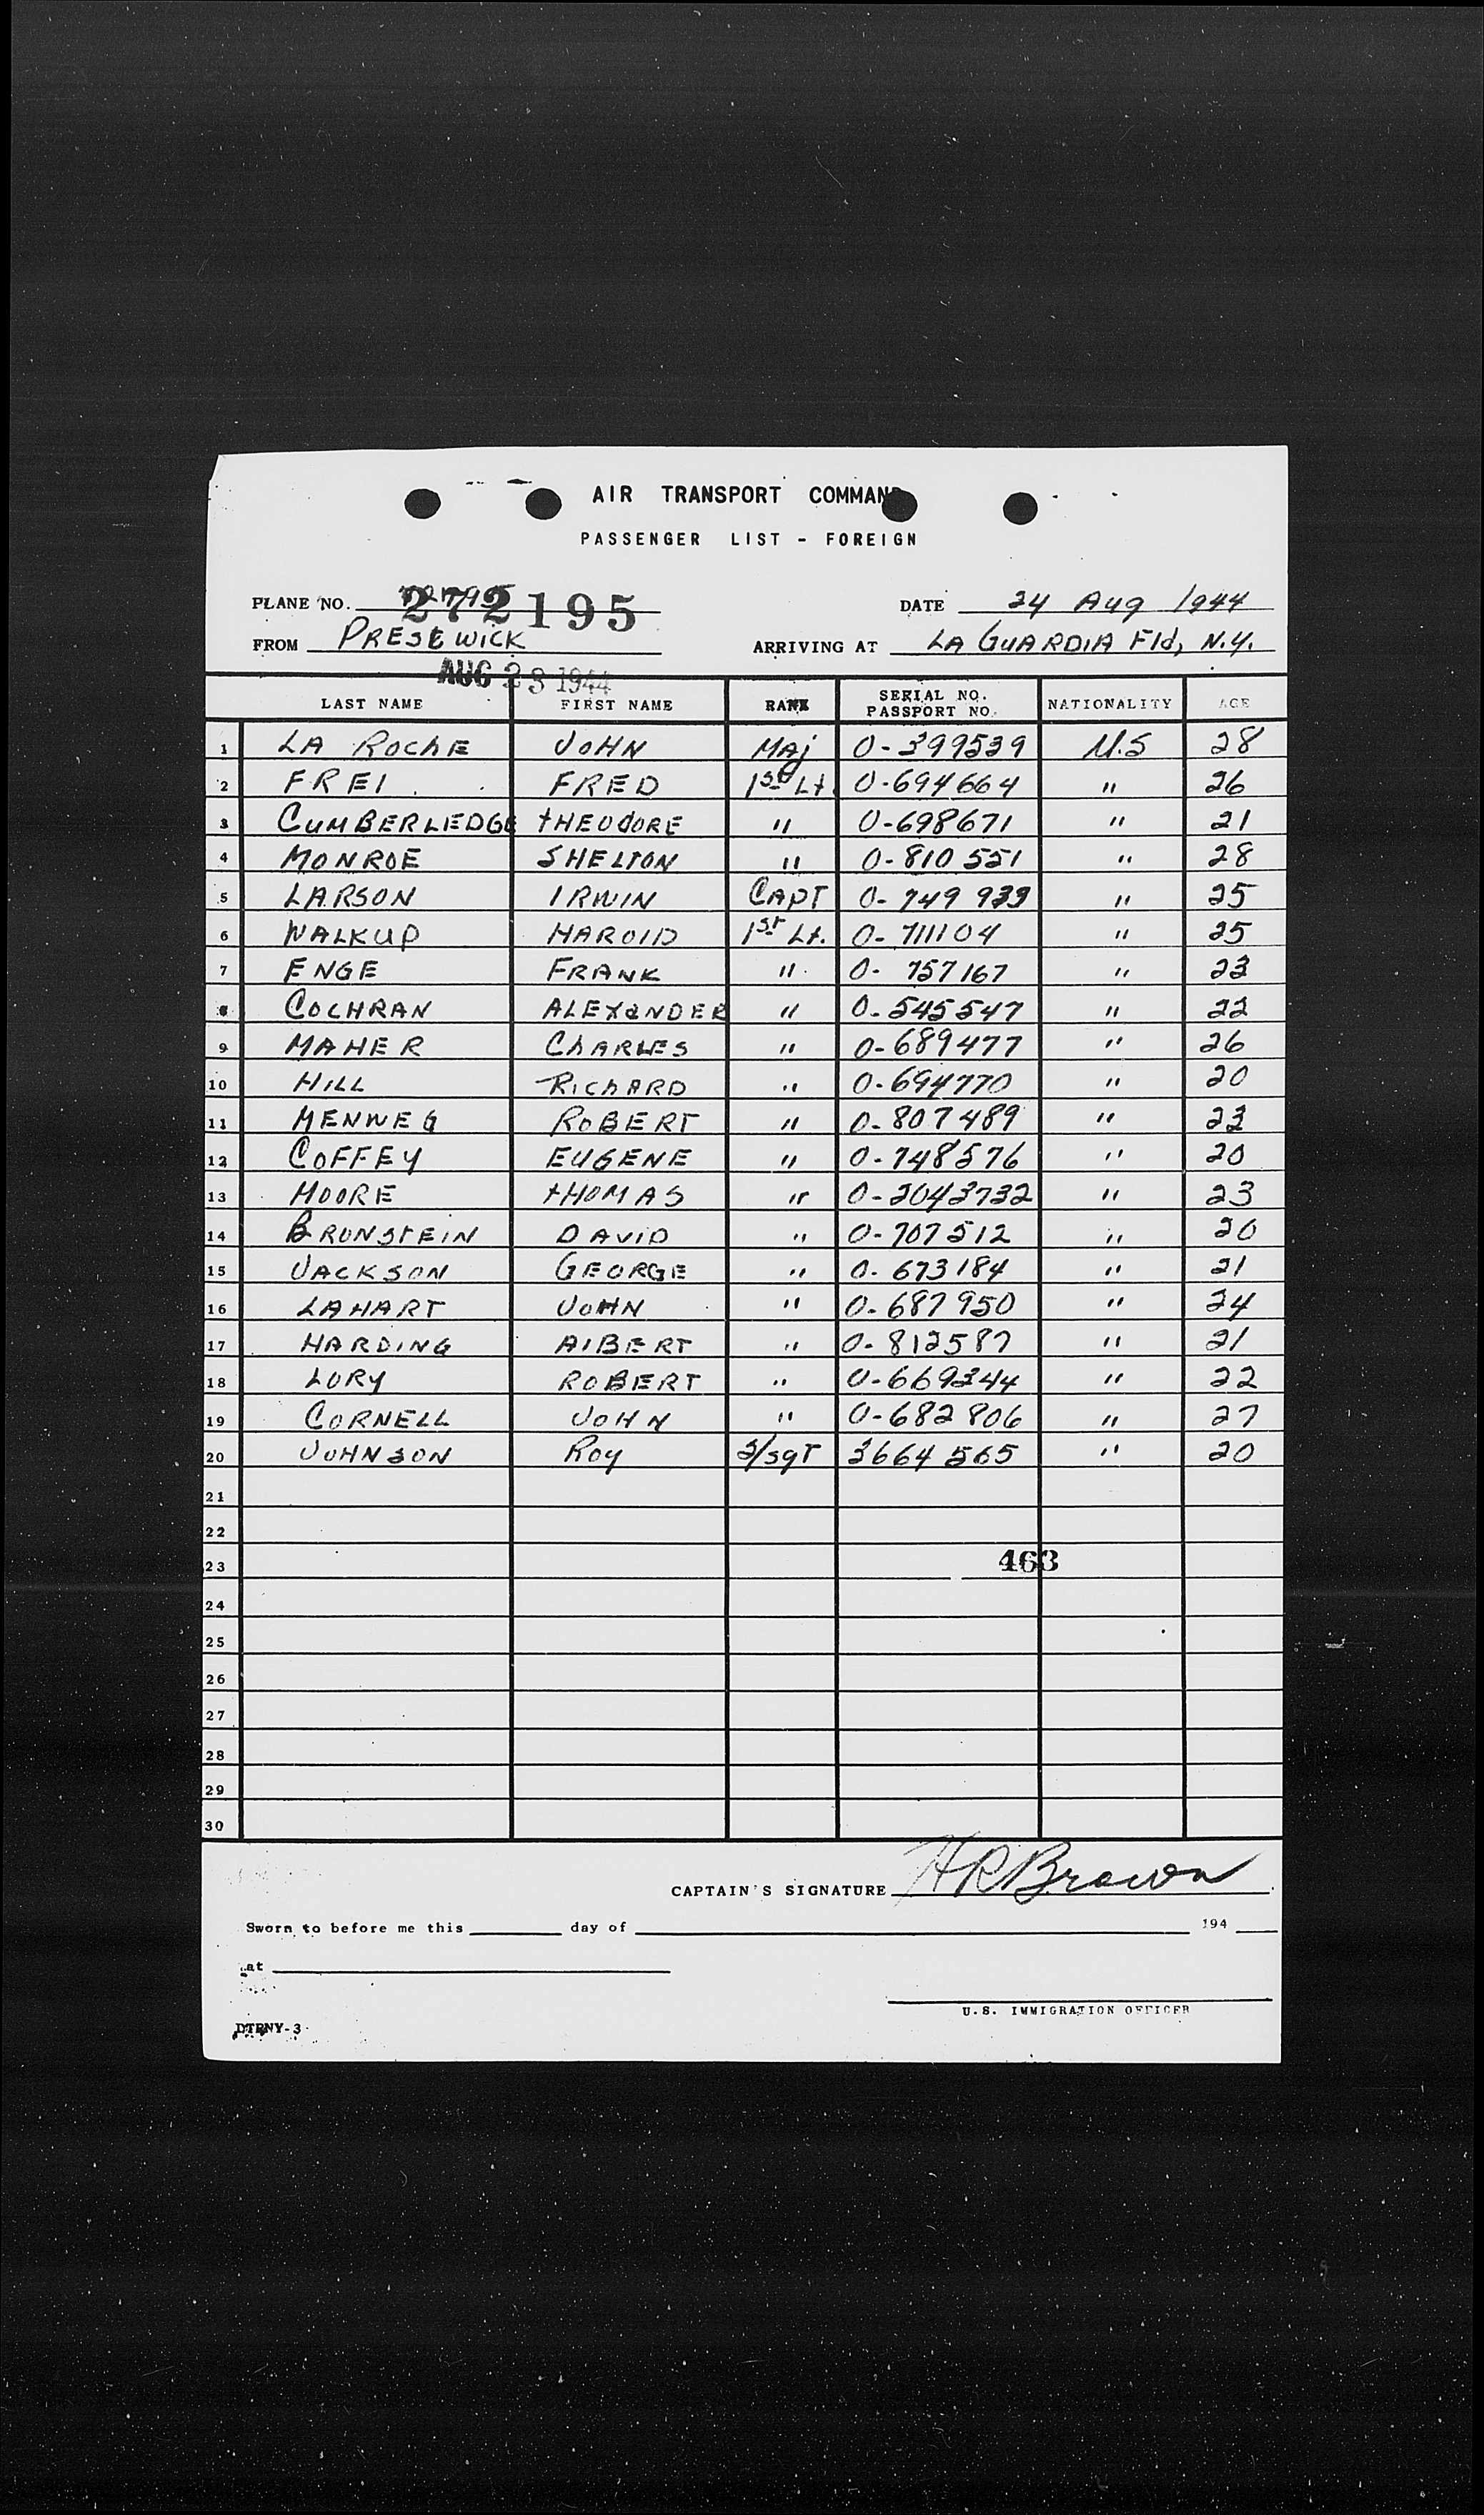 AIR TRANSPORT COMMAND
PASSENGER LIST - FOREIGN
PLANE NO. 272195 DATE 24 Aug 1944
FROM PRESEWICK ARRIVING AT LA GUARDIA Fld, N.Y.
AUG 23 1944
LAST NAME FIRST NAME RANK SERIAL NO. PASSPORT NO. NATIONALITY AGE
1 LA ROCHE JOHN MAJ O-399539 U.S 28
2 FREI FRED 1st Lt. O-694664 " 26
3 CUMBERLEDGE THEODORE " O-698671 " 21
4 MONROE SHELTON " O-810551 " 28
5 LARSON IRWIN CAPT O-749933 " 25
6 WALKUP HAROLD 1st Lt. O-711104 " 25
7 ENGE FRANK " O-757167 " 23
8 COCHRAN ALEXANDER " O-545547 " 22
9 MAHER CHARLES " O-689477 " 26
10 HILL RICHARD " O-694770 " 20
11 MENWEG ROBERT " O-807489 " 23
12 COFFEY EUGENE " O-748576 " 20
13 MOORE THOMAS " O-2043732 " 23
14 BRONSTEIN DAVID " O-707512 " 20
15 JACKSON GEORGE " O-673184 " 21
16 LAHART JOHN " O-687950 " 24
17 HARDING ALBERT " O-812587 " 21
18 LORY ROBERT " O-669344 " 22
19 CORNELL JOHN " O-682806 " 27
20 JOHNSON ROY S/SGT 3664565 " 20
21
22
23 463
24
25
26
27
28
29
30
CAPTAIN'S SIGNATURE HR Brown
Sworn to before me this day of 194
at
U.S. IMMIGRATION OFFICER
DTPNY-3